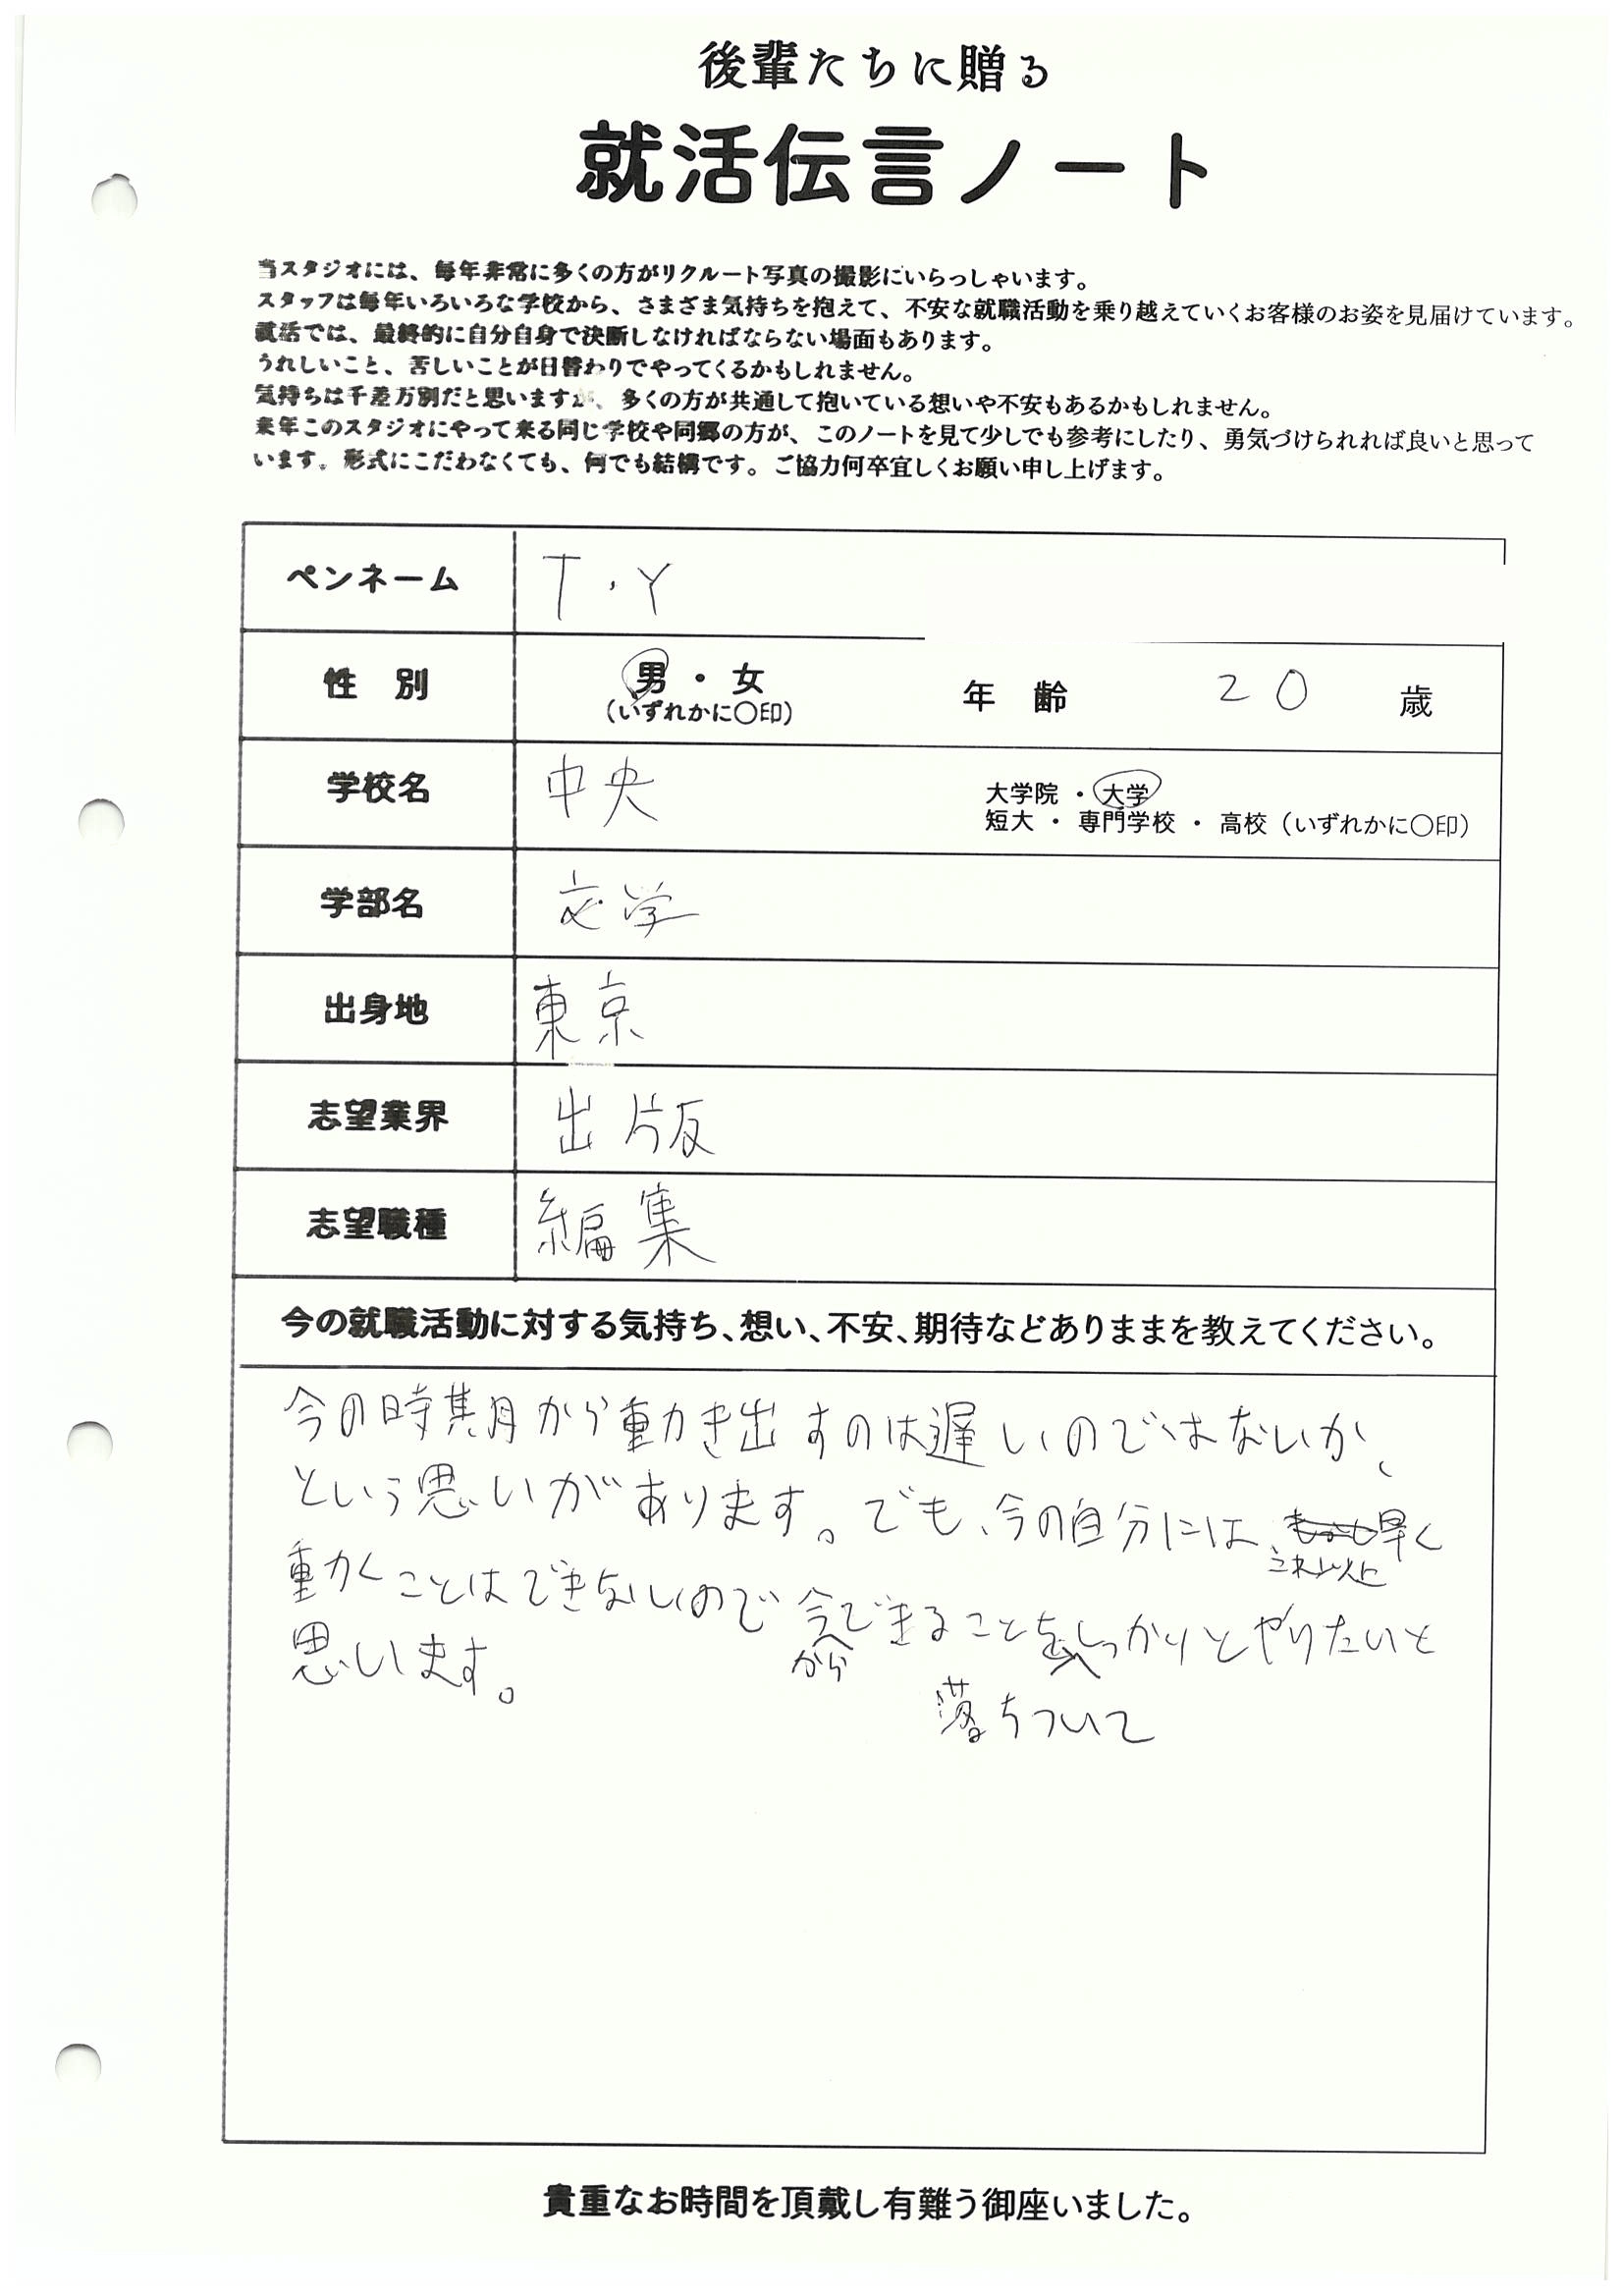 後輩たちに贈る
就活伝言ノート
当スタジオには、毎年非常に多くの方がリクルート写真の撮影にいらっしゃいます。
スタッフは毎年いろいろな学校から、さまざま気持ちを抱えて、不安な就職活動を乗り越えていくお客様のお姿を見届けています。
就活では、最終的に自分自身で決断しなければならない場面もあります。
うれしいこと、苦しいことが日替わりでやってくるかもしれません。
気持ちは千差万別だと思いますが、多くの方が共通して抱いている想いや不安もあるかもしれません。
来年このスタジオにやって来る同じ学校や同郷の方が、このノートを見て少しでも参考にしたり、勇気づけられれば良いと思って
います。形式にこだわなくても、何でも結構です。ご協力何卒宜しくお願い申し上げます。
ペンネーム T・Y
性 別 男 ・ 女 年 齢 20 歳
(いずれかに〇印)
学校名 中央 大学院 ・ 大学
短大 ・ 専門学校 ・ 高校(いずれかに〇印)
学部名 文学
出身地 東京
志望業界 出版
志望職種 編集
今の就職活動に対する気持ち、想い、不安、期待などありままを教えてください。
今の時期から動き出すのは遅いのではないか、
という思いがあります。でも、今の自分には、早く
これ以上
動くことはできないので今できることをしっかりとやりたいと
から
思います。
落ちついて
貴重なお時間を頂戴し有難う御座いました。